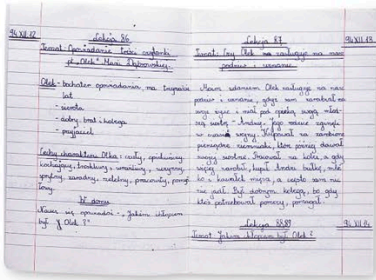 94.XII.12
Lekcja 86
Temat: Opowiadanie treści czytanki
pt. „Olek" Marii Dąbrowskiej.
Olek - bohater opowiadania, ma trzynaście
lat
- sierota
- dobry brat i kolega
- przyjaciel
Cechy charakteru Olka: czuły, opiekuńczy,
kochający, troskliwy, wrażliwy,
sprytny, zaradny, rzetelny, pracowity, pomy-
słowy.
W domu
Naucz się opowiadać - „Jakim chłopcem
był Olek?"
Lekcja 87
94.XII.13
Temat: Czy Olek zasługuje na nasz
podziw i uznanie.
Moim zdaniem Olek zasługuje na nasz
podziw i uznanie, gdyż sam zarabiał na
swoje życie i miał pod opieką swoją młod-
szą siostrę - Andzię, jego rodzice zginęli
w czasie wojny. Kupował za zarobione
pieniądze ziemniaki, które później dawał
swojej siostrze. Pracował na kolei, a gdy
więcej zarobił, kupił Andzi bułkę, mle-
ko i kawałek mięsa, a często sam nic
nie jadł. Był dobrym kolegą, bo gdy
ktoś potrzebował pomocy, pomagał.
Lekcja 88,89
94.XII.14
Temat: Jakim chłopcem był Olek?